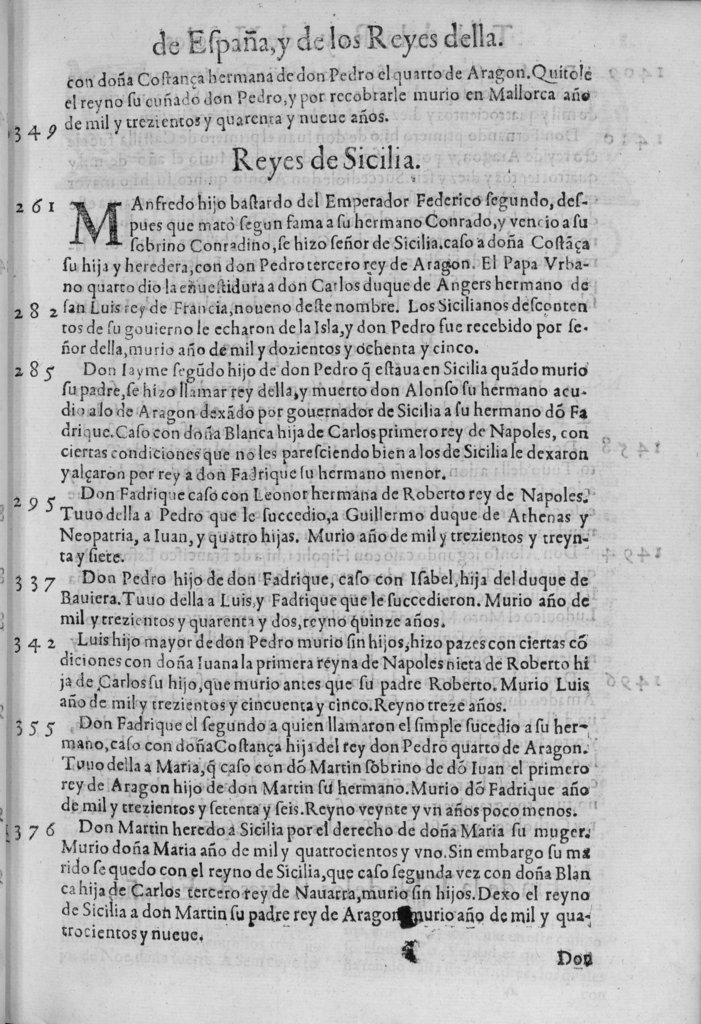 de España, y de los Reyes della.
con doña Costança hermana de don Pedro el quarto de Aragon. Quitole
el reyno su cuñado don Pedro, y por recobrarle murio en Mallorca año
349 de mil y trezientos y quarenta y nueue años.
Reyes de Sicilia.
261 MAnfredo hijo bastardo del Emperador Federico segundo, des-
pues que matò segun fama a su hermano Conrado, y vencio a su
sobrino Conradino, se hizo señor de Sicilia. caso a doña Costãça
su hija y heredera, con don Pedro tercero rey de Aragon. El Papa Vrba-
no quarto dio la enuestidura a don Carlos duque de Angers hermano de
282 san Luis rey de Francia, noueno deste nombre. Los Sicilianos desconten
tos de su gouierno le echaron de la Isla, y don Pedro fue recebido por se-
ñor della, murio año de mil y dozientos y ochenta y cinco.
285 Don Iayme segũdo hijo de don Pedro q̃ estaua en Sicilia quãdo murio
su padre, se hizo llamar rey della, y muerto don Alonso su hermano acu-
dio a lo de Aragon dexãdo por gouernador de Sicilia a su hermano dõ Fa
drique. Caso con doña Blanca hija de Carlos primero rey de Napoles, con
ciertas condiciones que no les paresciendo bien a los de Sicilia le dexaron
y alçaron por rey a don Fadrique su hermano menor.
295 Don Fadrique caso con Leonor hermana de Roberto rey de Napoles.
Tuuo della a Pedro que le succedio, a Guillermo duque de Athenas y
Neopatria, a Iuan, y quatro hijas. Murio año de mil y trezientos y treyn-
ta y siete.
337 Don Pedro hijo de don Fadrique, caso con Isabel, hija del duque de
Bauiera. Tuuo della a Luis, y Fadrique que le succedieron. Murio año de
mil y trezientos y quarenta y dos, reyno quinze años.
342 Luis hijo mayor de don Pedro murio sin hijos, hizo pazes con ciertas cõ
diciones con doña Iuana la primera reyna de Napoles nieta de Roberto hi
ja de Carlos su hijo, que murio antes que su padre Roberto. Murio Luis
año de mil y trezientos y cincuenta y cinco. Reyno treze años.
355 Don Fadrique el segundo a quien llamaron el simple sucedio a su her-
mano, caso con doña Costança hija del rey don Pedro quarto de Aragon.
Tuuo della a Maria, q̃ caso con dõ Martin sobrino de dõ Iuan el primero
rey de Aragon hijo de don Martin su hermano. Murio dõ Fadrique año
de mil y trezientos y setenta y seis. Reyno veynte y vn años poco menos.
376 Don Martin heredo a Sicilia por el derecho de doña Maria su muger.
Murio doña Maria año de mil y quatrocientos y vno. Sin embargo su ma
rido se quedo con el reyno de Sicilia, que caso segunda vez con doña Blan
ca hija de Carlos tercero rey de Nauarra, murio sin hijos. Dexo el reyno
de Sicilia a don Martin su padre rey de Aragon murio año de mil y qua-
trocientos y nueue.
Don